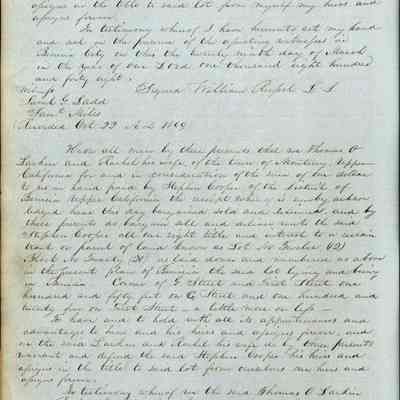 assigns in the title to said lot from myself my heirs and
assigns firever.
In testimony whereof I have hereunto set my hand
and seal in the presence of the operating witnesses in
Benicia City on this the twenty ninth day of March
in the year of our Lord one thousand eight hundred
and forty eight.
Witness Signed William Russel L. S.
Saml Stiles
Recorded Oct 22 A.D. 1849
Know all men by these presents that we Thomas O
Larkin and Rachel his wife of the town of Monterey Upper
California for and in consideration of the sum of one dollar
to us in hand paid by Stephen Cooper of the District of
Benicia Upper California the receipt whereof is hereby acknow
ledged have this day bargained sold and released, and by
these presents do bargain sell and release unto the said
Stephen Cooper all our right title and interest to a certain
tract or parcel of land known as Lot No Twelve (12)
Block No Twenty 20 as laid down and numbered as above
in the present plan of Benicia the said lot lying and being
in Benicia Corner of G Street and First Street one
hundred and fifty feet on G Street and one hundred and
twenty five on First Street - a little more or less -
To have and to hold with all its appurtenances and
advantages to him and his heirs and assigns firever, and
we the said Larkin and Rachel his wife do by these presents
warrant and defend the said Stephen Cooper his heirs and
assigns in the title to said lot from ourselves our heirs and
assigns firever.
In testimony whereof we the said Thomas O Larkin